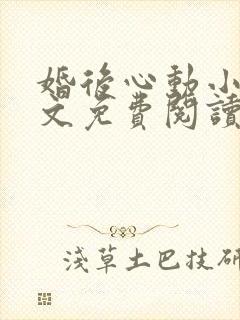 婚後心動小
文免費閱讀
淺草土巴技研